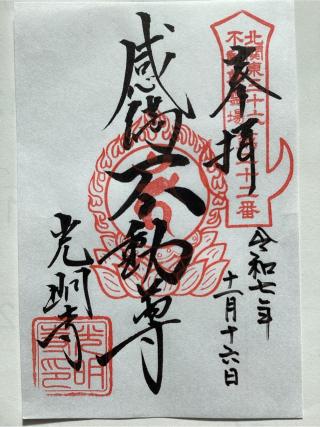 奉拝
令和七年
十一月十六日
感得不動尊
光明寺
北関東三十六
不動尊霊場
第二十二番
光明
寺印